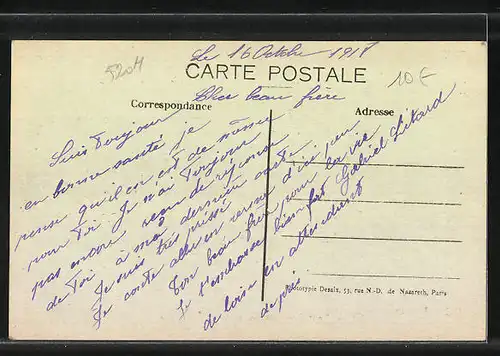 5204
Le 16 Octobre 1918
CARTE POSTALE
10 €
Correspondance
Cher beau frère
Adresse
Suis Toujour
en bonne santé je
pense qu'il en est de même
pour Toi Je n'ai Toujour
pas encore recu de réponse
de Toi a ma dernière carte
Je suis très pressé
Je conte aller en perme d'ici peu
Ton beau frère pour la vie
Je t'embrasse bien fort Gabriel Litard
de loin en attendent
de près
Phototypie Desaix, 53, rue N.-D. de Nazareth, Paris